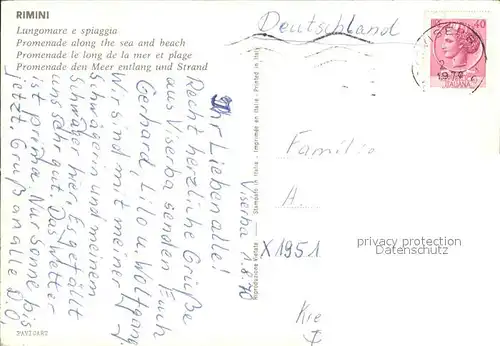 RIMINI
Lungomare e spiaggia
Promenade along the sea and beach
Promenade le long de la mer et plage
Promenade den Meer entlang und Strand
Deutschland
40
ITALIANA
Viserba 1.8.70
Ihr Lieben alle!
Recht herzliche Grüße
aus Viserba senden Euch
Gerhard, Lilo u. Wolfgang
Wir sind mit meiner
Schwägerin und meinem
Schwager hier. Es gefällt
uns sehr gut. Das Wetter
ist prima. Nur Sonne bis
jetzt. Gruß an alle D.O.
Riproduzione Vietata
Stampato in Italia - Imprimée en Italie - Printed in Italy
Familie
A.
X1951
privacy protection
Datenschutz
Kie
I